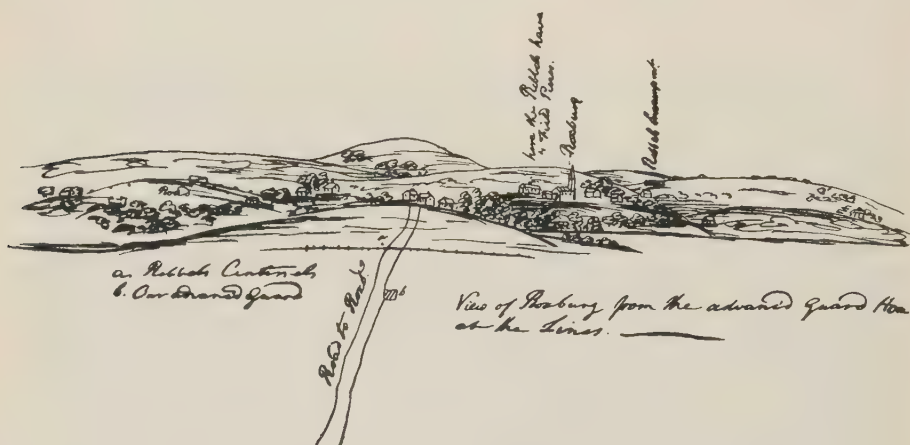 here the Rebbels have
4 Field Pieces.
Roxburg
Rebbel Incampmt.
Road
a
a. Rebbels Centinels
b. Our advanced Guard
b
Road to
View of Roxburg from the advanced Guard House
at the Lines.